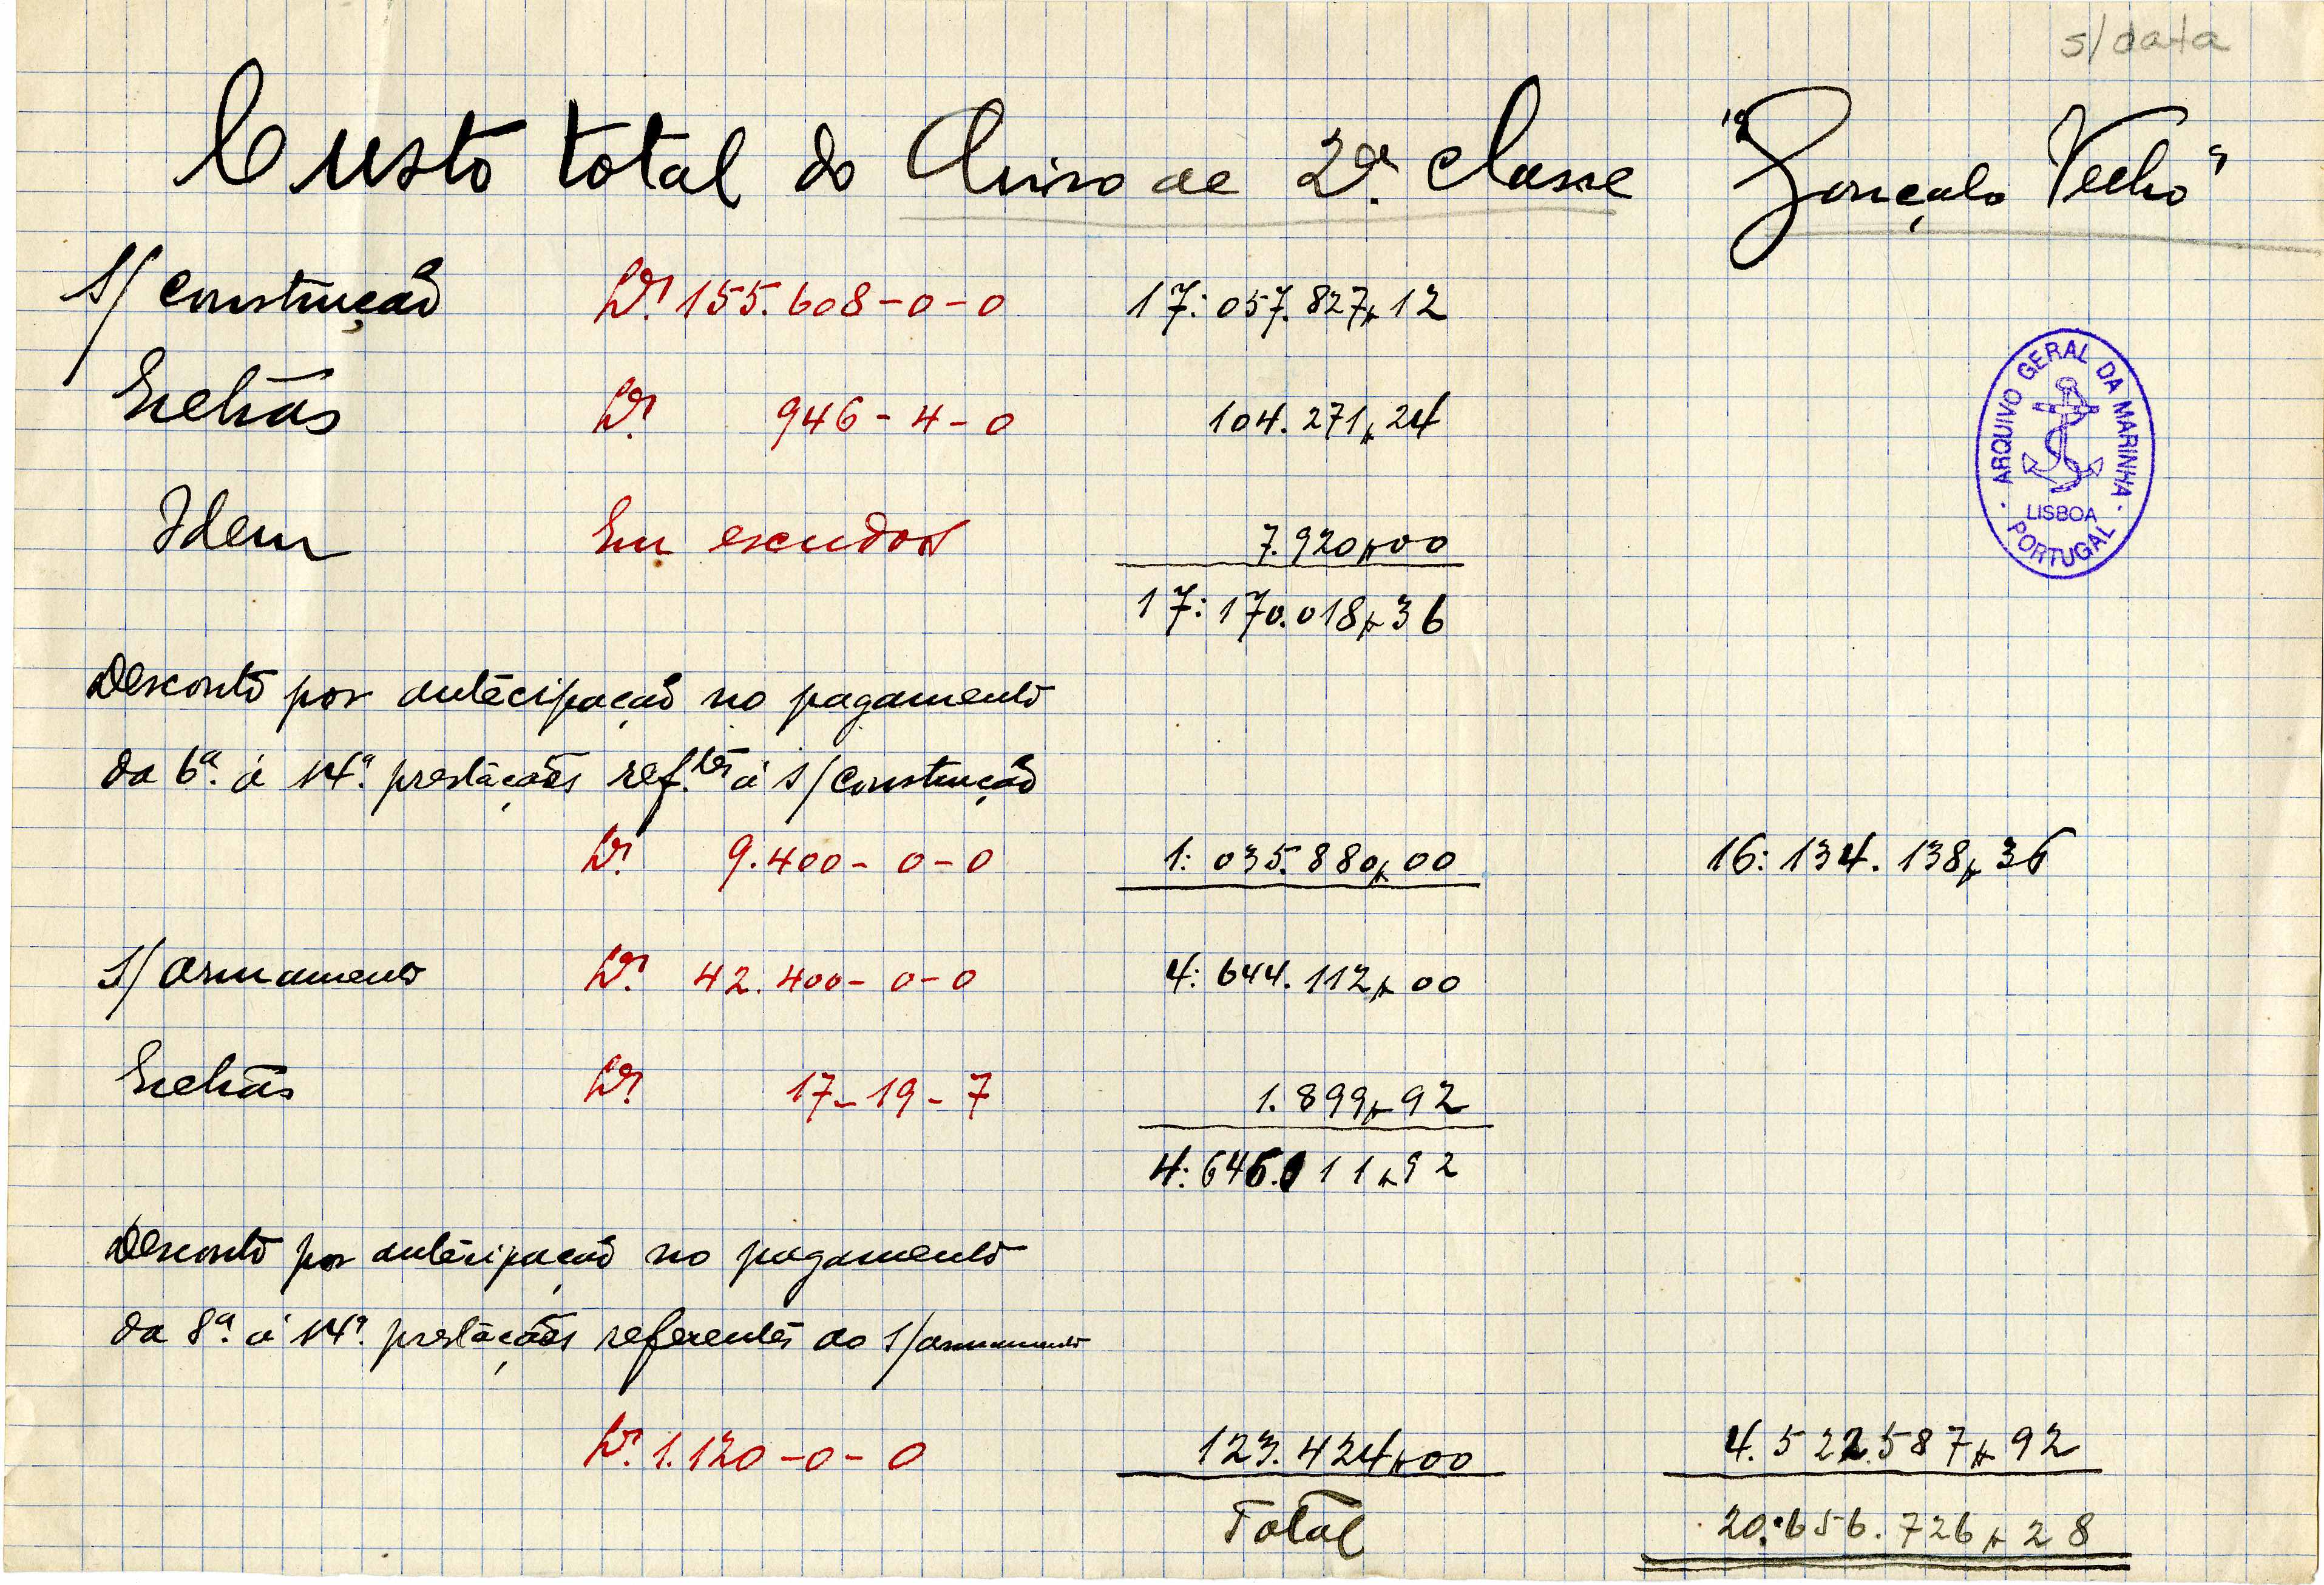 s/data
Custo total do Aviso de 2ª. classe "Gonçalo Velho"
S/ construção £ 155.608-0-0 17:057.827$12
Extras £ 946-4-0 104.271$24
Idem Em escudos 7.920$00
17:170.018$36
Desconto por antecipação no pagamento
da 6ª. à 14ª. prestações ref.tes à s/construção
£ 9.400-0-0 1:035.880$00 16:134.138$36
S/ armamento £ 42.400-0-0 4:644.112$00
Extras £ 17-19-7 1.899$92
4:646.011$92
Desconto por antecipação no pagamento
da 8ª. à 14ª. prestações referentes ao s/armamento
£ 1.120-0-0 123.424$00 4.522.587$92
Total 20:656.726$28
ARQUIVO GERAL DA MARINHA
LISBOA
PORTUGAL